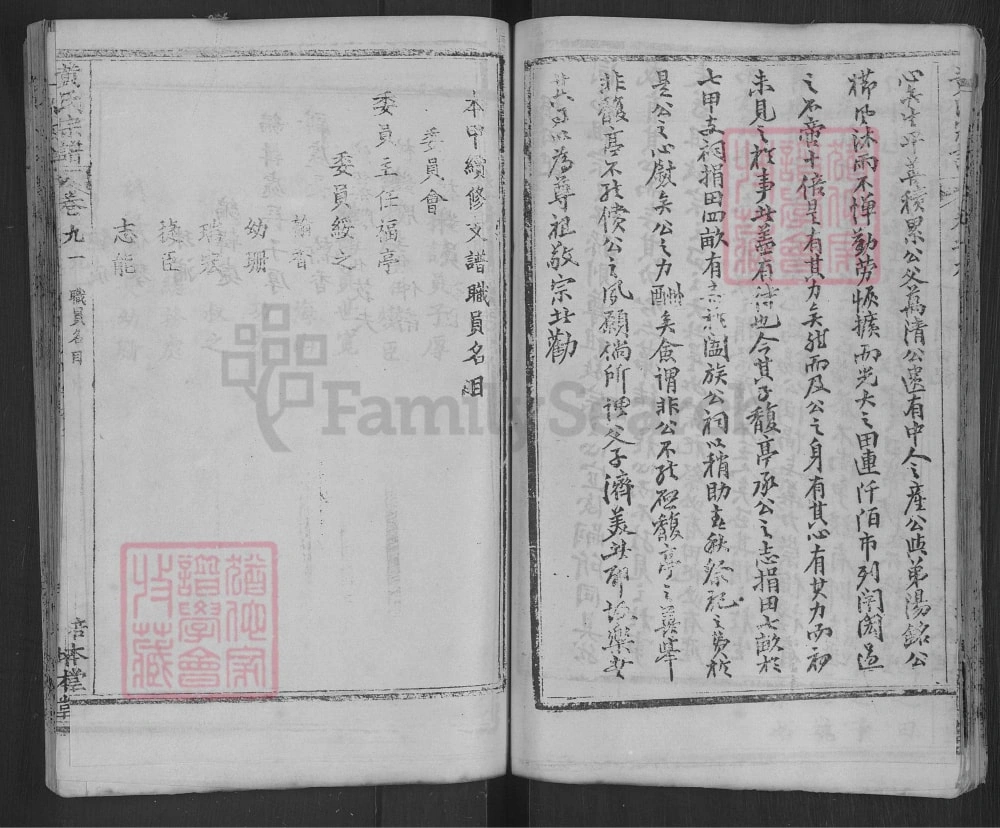 心矣生平善積累公父為清公遺有中人之產公與弟湯銘公
櫛風沐雨不憚勤勞恢擴而光大之田連阡陌市列闤闠過
之不啻十倍是有其力矣然而及公之身有其心有其力而初
未見之於事此蓋有待也今其子馥亭承公之志捐田七畝於
七甲支祠捐田四畝有 於闔族公祠以稍助春秋祭祀之費於
是公之心慰矣公之力酬矣僉謂非公不能 馥亭之善舉
非馥亭不能償公之夙願倘所謂父子濟美 者
其 以為尊祖敬宗者勸
本甲續修支譜職員名目
委員會
委員主任福亭
委員綬之
翰香
幼珊
瑞宏
臣
志能
黃氏宗譜
卷九
一
職員名目
敦本堂
猶他家譜學會收藏
猶他家譜學會收藏
FamilySearch